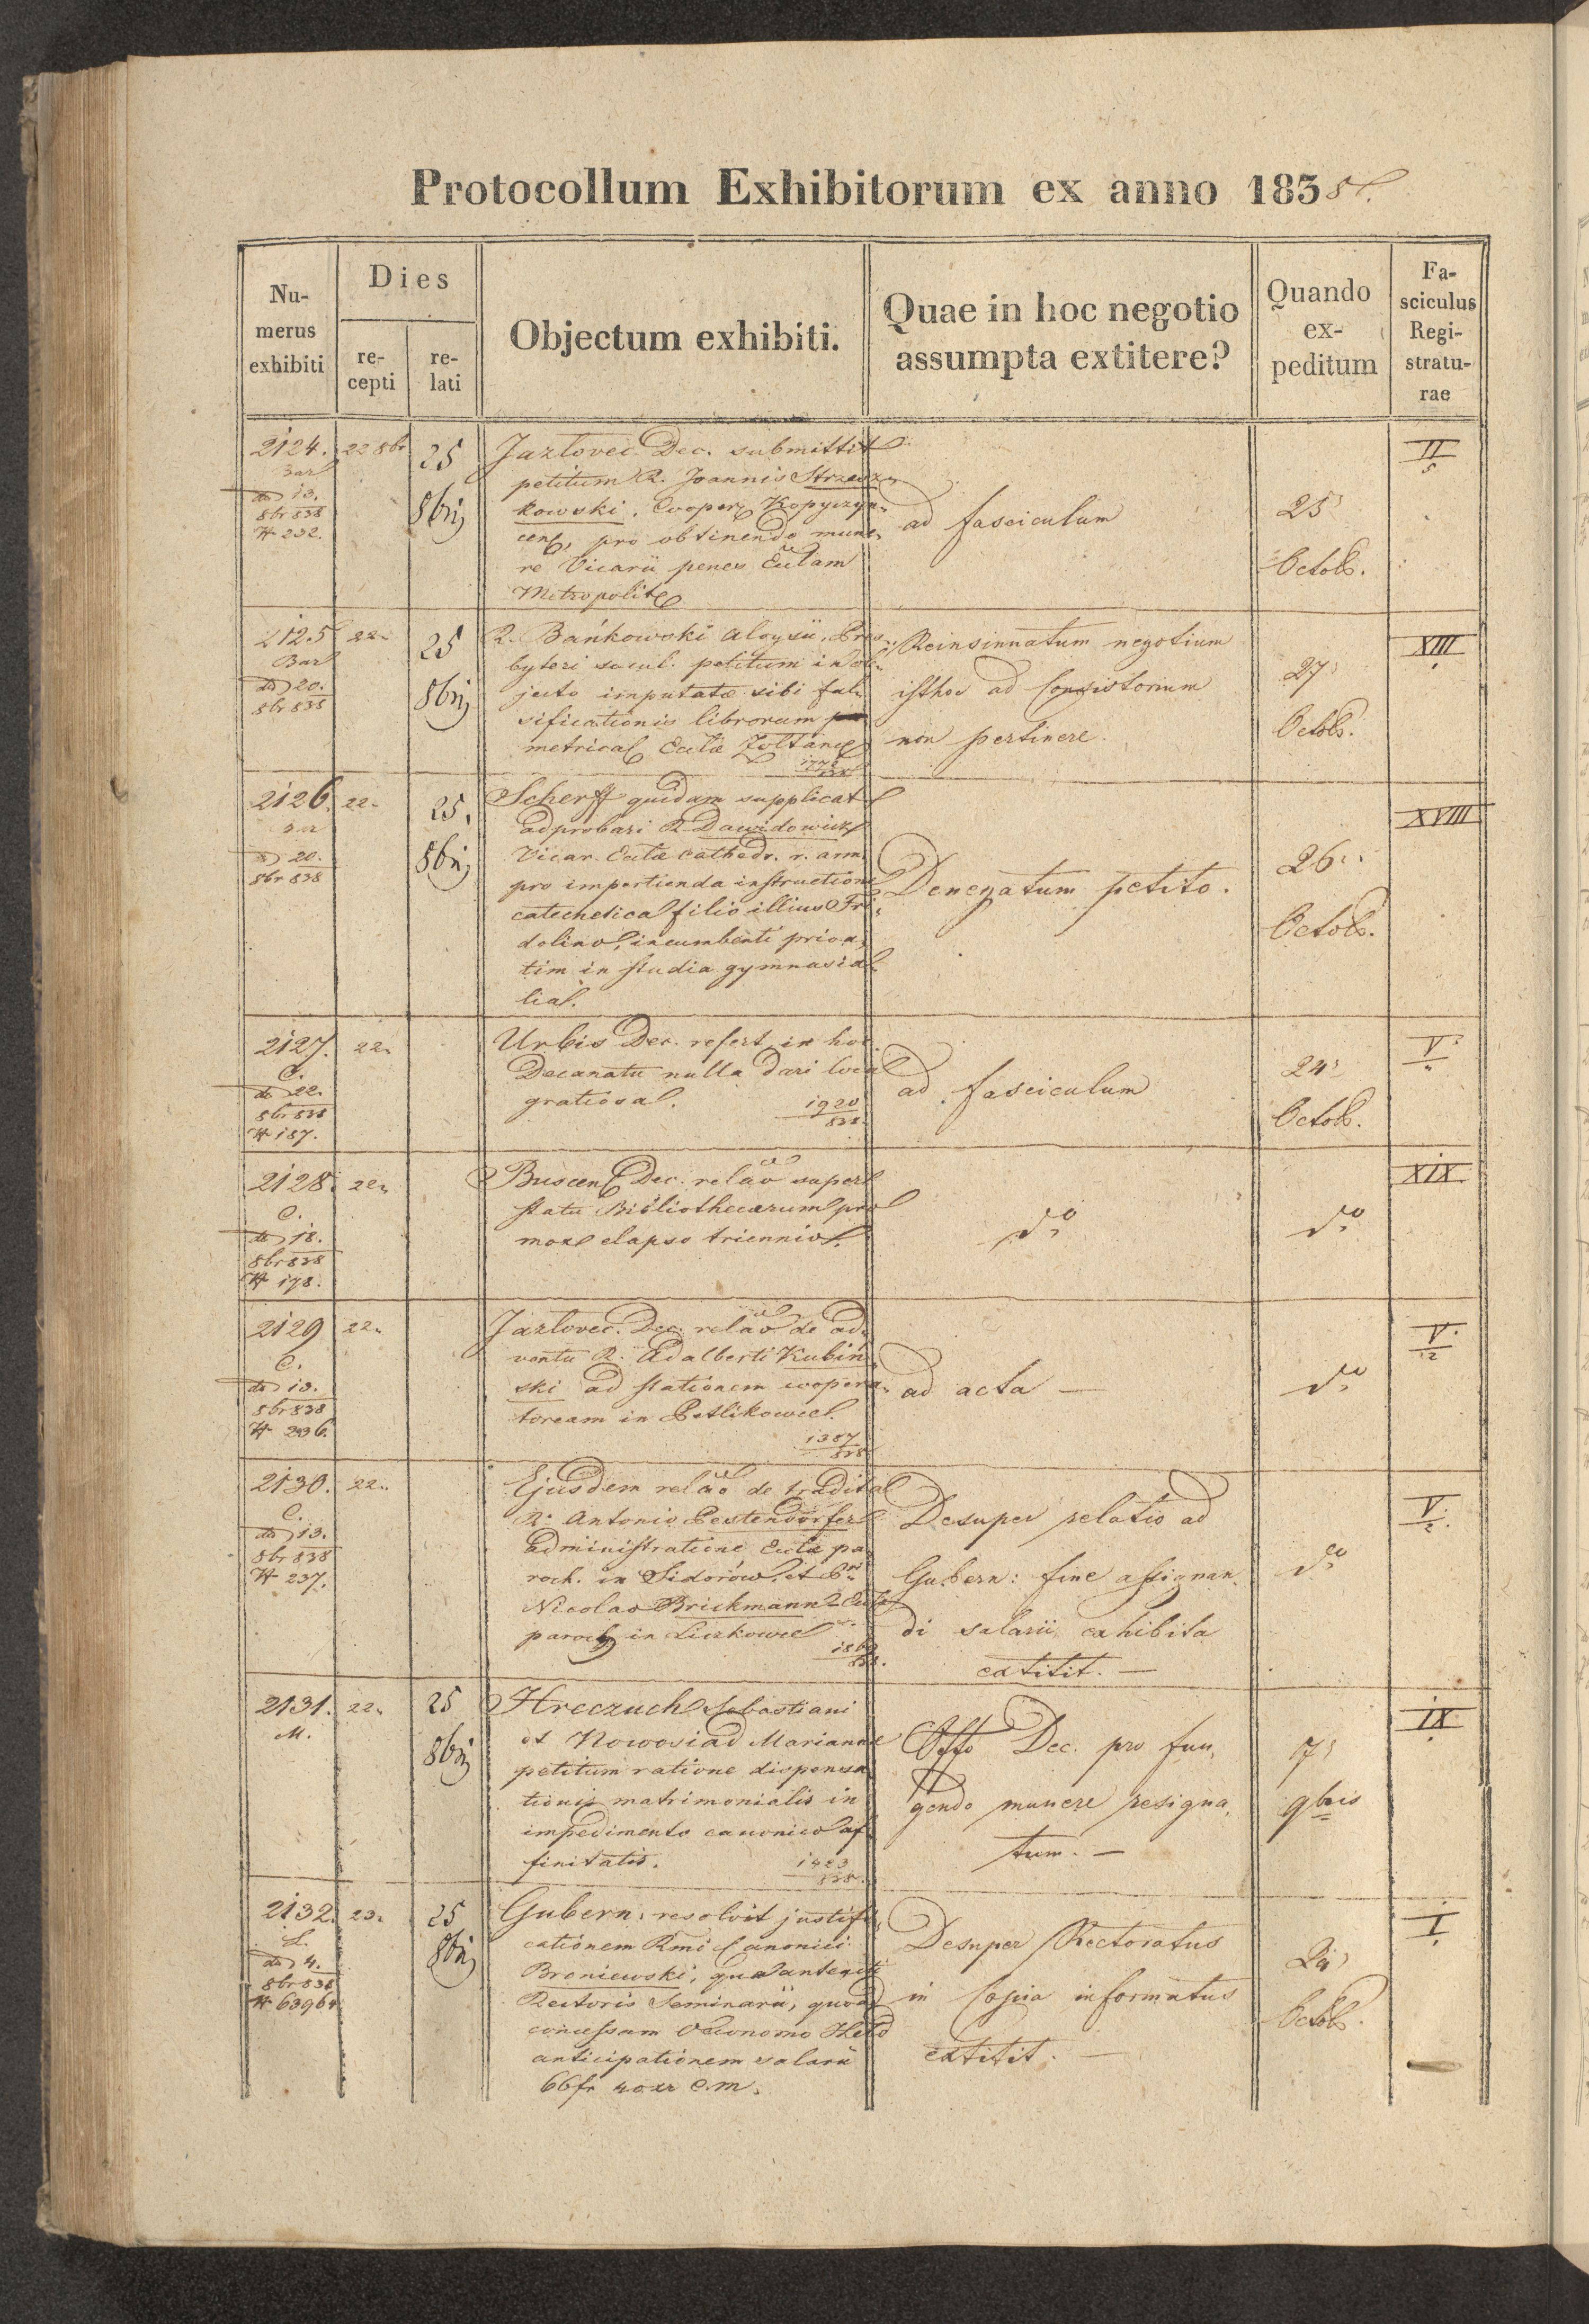 Protocollum Exhibitorum ex anno 1838.
Nu-
merus
exhibiti
Dies
re-
cepti
re-
lati
Objectum exhibiti.
Quae in hoc negotio
assumpta extitere?
Quando
ex-
peditum
Fa-
sciculus
Regi-
stratu-
rae
2124.
dto 13.
8br 838
# 232.
22 8br
25
8bris
Jazlovec. Dec. submittit
petitum R. Joannis Strzesz-
kowski, Cooper. Kopyczyn-
cens, pro obtinendo mune-
re Vicarii penes Ecclam
Metropolit
ad fasciculum
25
Octob.
II
5
2125
dto 20.
8br 838
22
25
8bris
R. Bańkowski Aloysii, Pres-
byteri saecul. petitum in ob-
jecto imputatae sibi fal-
sificationis librorum
metrical Ecclae Zoltance
Reinsinuatum negotium
isthoc ad Consistorium
non pertinere.
27
Octob.
XIII
2126.
dto 20.
8br 838
22
25.
8bris
Scherff quidam supplicat
adprobari R. Dawidowicz
Vicar. Ecclae cathedr. r. arm.
pro impertienda instructione
catechetica filio illius Fri-
dolino, incumbenti priva-
tim in studia gymnasia-
lia.
Denegatum petito.
26
Octob.
XVIII
2127.
C.
dto 22.
8br 838
# 187.
22
Urbis Dec. refert, in hoc
Decanatu nulla dari loca
gratiosa.
1920
838.
ad fasciculum
24
Octob.
V
2128.
C.
dto 18.
8br 838
# 178.
22
Buscens Dec. relao super
statu Bibliothecarum pro
mox elapso triennio.
do
do
XIX.
2129
C.
dto 13.
8br 838
# 236.
22
Jazlovec. Dec. relao de ad-
ventu R. Adalberti Kubin-
ski ad stationem coopera-
toream in Petlikowce.
1387
838
ad acta —
do
V.
12
2130.
C.
dto 13.
8br 838
# 237.
22
Ejusdem relao de tradita
R. Antonio Pestendorfer
administratione Ecclae pa-
roch. in Sidorów, et
Nicolao Brickmann Ecclae
paroch in Liczkowce
Desuper relatio ad
Gubern: fine assignan-
di salarii exhibita
extitit. —
do
V.
2.
2131.
M.
22
25
8bris
Hreczuch Sebastiani
et Nowosiad Marianne
petitum ratione dispensa-
tionis matrimonialis in
impedimento canonico af-
finitatis.
1423
838.
Offo Dec. pro fun-
gendo munere resigna-
tum. —
7
9bris
IX
2132.
L.
dto 4.
8br 838
# 63964
23
25
8bris
Gubern. resolvit justifi-
cationem Rmi Canonici
Broniewski, qua anteacti
Rectoris Seminarii, quoad
concessam Oeconomo Held
anticipationem salarii
66 fr 40 xr c.m.
Desuper Rectoratus
in Copia informatus
extitit. —
Octob.
I